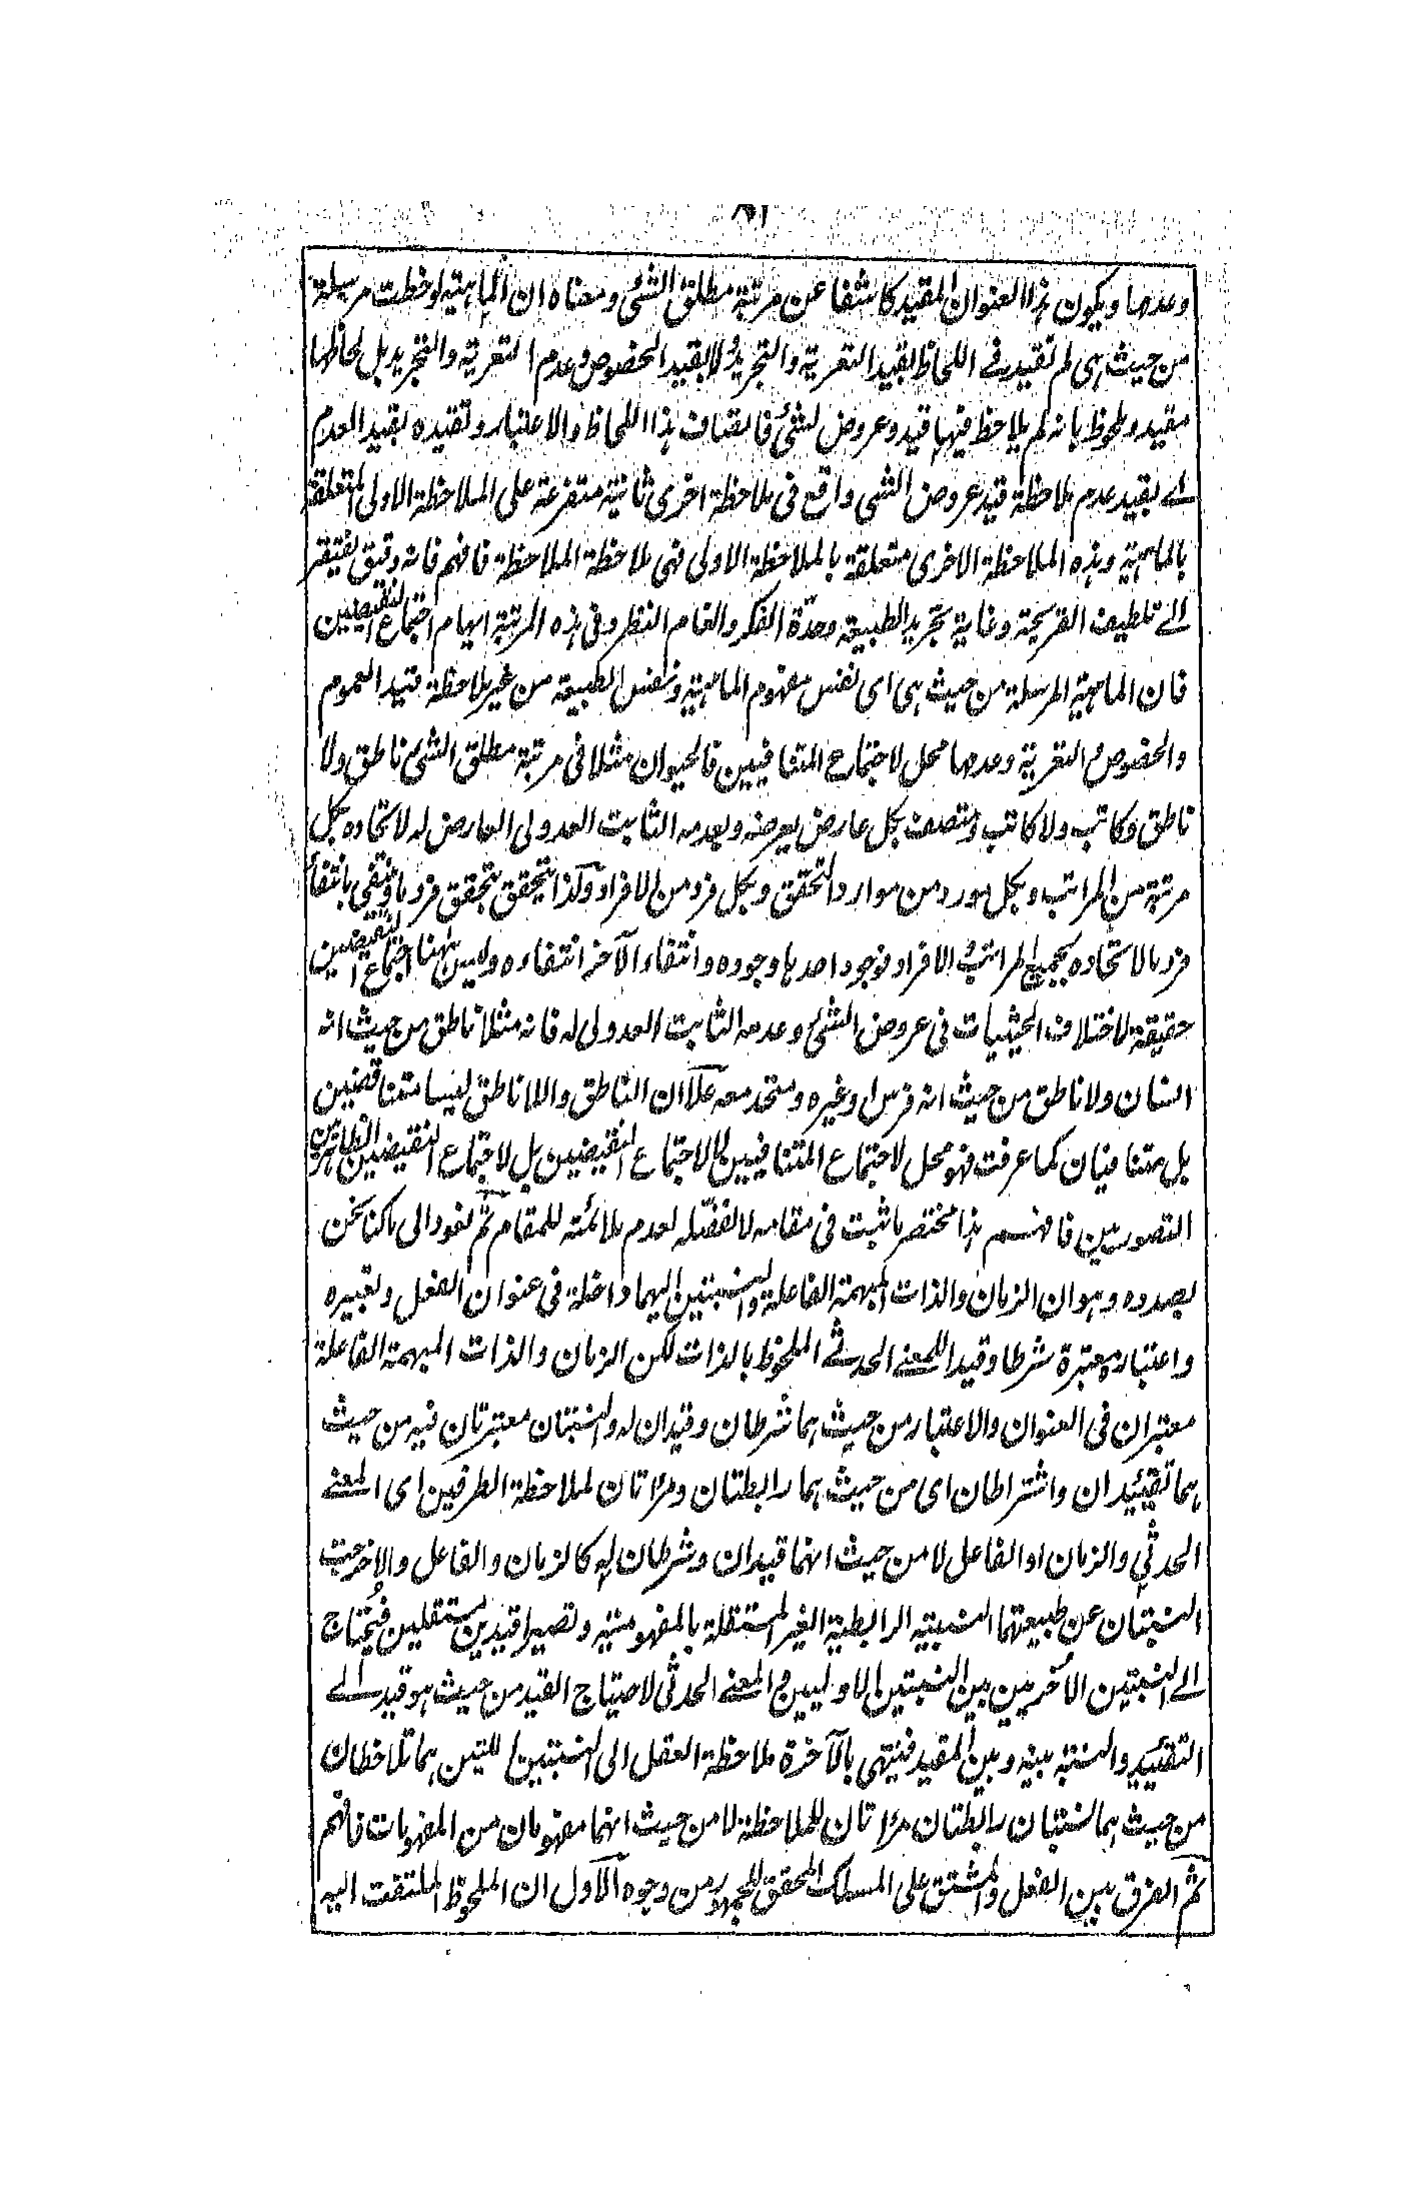 وعدمها ويكون هذا العنوان المقيد كاشفا عن مرتبة مطلق الشئ ومعناه ان الماهية لوحظت مرسلة
من حيث هى لم تقيد فى اللحاظ بقيد التعرية والتجريد ولا بقيد الخصوص وعدم التعرية والتجريد بل لحاظها
مقيد وملحوظ بانه لم يلاحظ فيها قيد وعروض لشئ فاتصاف هذا اللحاظ والاعتبار وتقيده بقيد العدم
اے بقيد عدم ملاحظة قيد عروض الشى واقع فى ملاحظة اخرى ثانية متفرعة على الملاحظة الاولى المتعلقة
بالماهية وهذه الملاحظة الاخرى متعلقة بالملاحظة الاولى فهى ملاحظة الملاحظة فافهم فانه دقيق يفتقر
الے تلطيف القريحة وغاية تجريد الطبيعة وحدّة الفكر والغام النظر وفى هذه المرتبة ايهام اجتماع النقيضين
فان الماهية المرسلة من حيث هى اى نفس مفهوم الماهية ونفس الطبيعة من غير ملاحظة قيد العموم
والخصوص والتعرية وعدمها محل لاجتماع المتنافيين فالحيوان مثلا فى مرتبة مطلق الشئ ناطق ولا
ناطق وكاتب ولا كاتب ومتصف بكل عارض يعرضه وبعدمه الثابت العدولى العارض له لاتحاده بكل
مرتبة من المراتب وبكل مورد من موارد التحقق وبكل فرد من الافراد وكذا يتحقق بتحقق فرد ما وينتفى بانتفاء
فرد ما لاتحاده بجميع المراتب والافراد فوجود احدها وجوده وانتفاء الآخر انتفاءه وليس ههنا اجتماع النقيضين
حقيقة لاختلاف الحيثيات فى عروض الشئ وعدمه الثابت العدولى له فانه مثلا ناطق من حيث انه
انسان ولا ناطق من حيث انه فرس او غيره ومتحد معه علا ان الناطق واللاناطق ليسا متناقضين
بل متنافيان كما عرفت فهو محل لاجتماع المتنافيين لا لاجتماع النقيضين بل لاجتماع النقيضين الظاهرين
التصوريين فافهم هذا مختصر ما ثبت فى مقامه لا نفصّله لعدم ملائمته للمقام ثم نعود الى ما كنا نحن
بصدده وهو ان الزمان والذات المبهمة الفاعلة والنسبتين اليهما داخلة فى عنوان الفعل وتعبيره
واعتباره معتبرة شرطا وقيدا للمعنے الحدثے الملحوظ بالذات لكن الزمان والذات المبهمة الفاعلة
معتبران فى العنوان والاعتبار من حيث هما شرطان وقيدان له والنسبتان معتبرتان فيه من حيث
هما تقييدان واشتراطان اى من حيث هما رابطتان ومرآتان لملاحظة الطرفين اى المعنے
الحدثي والزمان او الفاعل لا من حيث انهما قيدان وشرطان له كالزمان والفاعل والا خرجت
النسبتان عن طبيعتهما النسبتيه الرابطية الغير المستقلة بالمفهومية وتصيرا قيدين مستقلين فيحتاج
الے النسبتين الأخريين بين النسبتين الاوليين والمعنے الحدثى لاحتياج القيد من حيث هو قيد الے
التقييد والنسبة بينه وبين المقيد فينتهى بالآخرة ملاحظة العقل الى النسبتين اللتين هما تلاحظان
من حيث هما نسبتان رابطتان مرآتان للملاحظة لا من حيث انهما مفهومان من المفهومات فافهم
ثم الفرق بين الفعل والمشتق على المسلك المحقق للجمهور من وجوه الاول ان الملحوظ الملتفت اليه